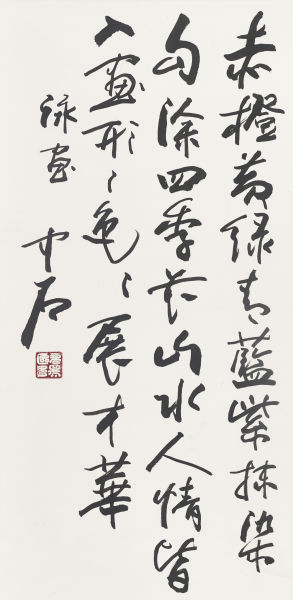 赤橙黄绿青藍紫抹染
勾涂四季花山水人情皆
入画形々色々展才華
詠画 中石